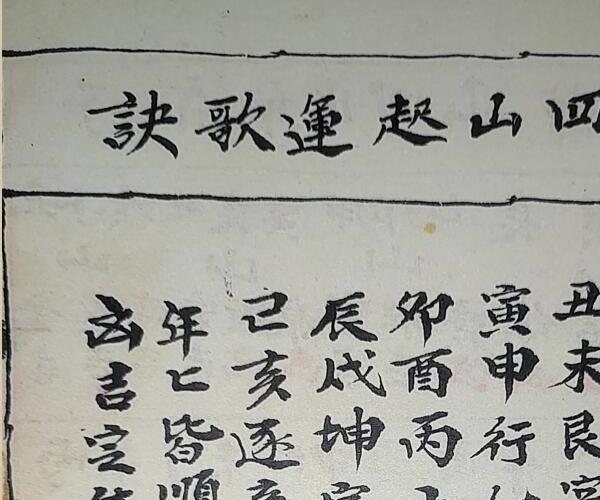 四山起運歌訣
丑未艮宮
寅申行
卯酉丙
辰戌坤宮
己亥逐
年亡皆順
凶吉定